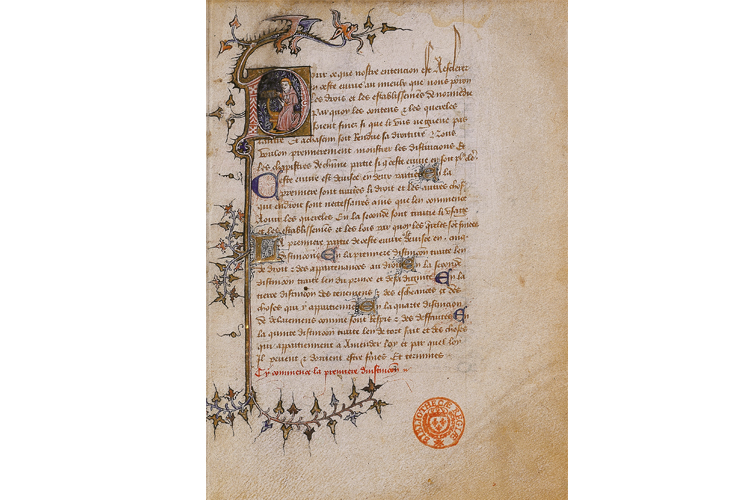 Pour ce que nostre entencion est de esclerer
en ceste euure au mieulx que nous poron
les drois et les establissemens de normendie
Par quoy les contens et les quereles
soient finez si que le
Et a chascun soit rendue sa droiture Nous
voulon premierement monstrer les distincions Et
les chapistres de chascune partie si que ceste euure en soit plus clere
Ceste euure est deuisee en deux parties En la
premiere sont traities le droit et les autres choses
que en droit sont necessaires ains que len commence
A ouir les quereles En la seconde sont traities les usages
et les establissemens et les lois par quoy les quereles sont finees
La premiere partie de ceste euure est deuisee en cinq
distincions En la premiere distincion traite len
de droit et des appartenances au droit En la seconde
distincion traite len du prince et de sa dignite En la
tierce distincion des teneures et des escheances et des
choses qui y appartiennent En la quarte distincion
de delaiemens comme sont respis et des deffautes En
la quinte distincion traite len de tort fait et des choses
qui appartiennent a amender loy et par quel loy
Il peuent et doiuent estre finees Et terminees
Cy commence la premiere distincion
BIBLIOTHECÆ REGIÆ